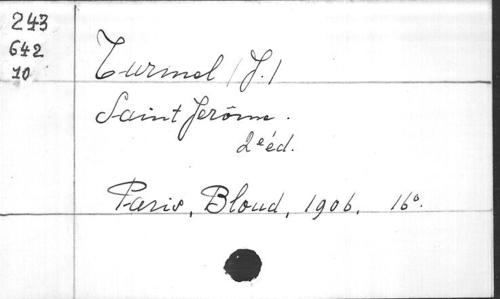 243
642
10
Turmel (J.)
Saint Jerôme.
2e éd.
Paris, Bloud, 1906. 16o.